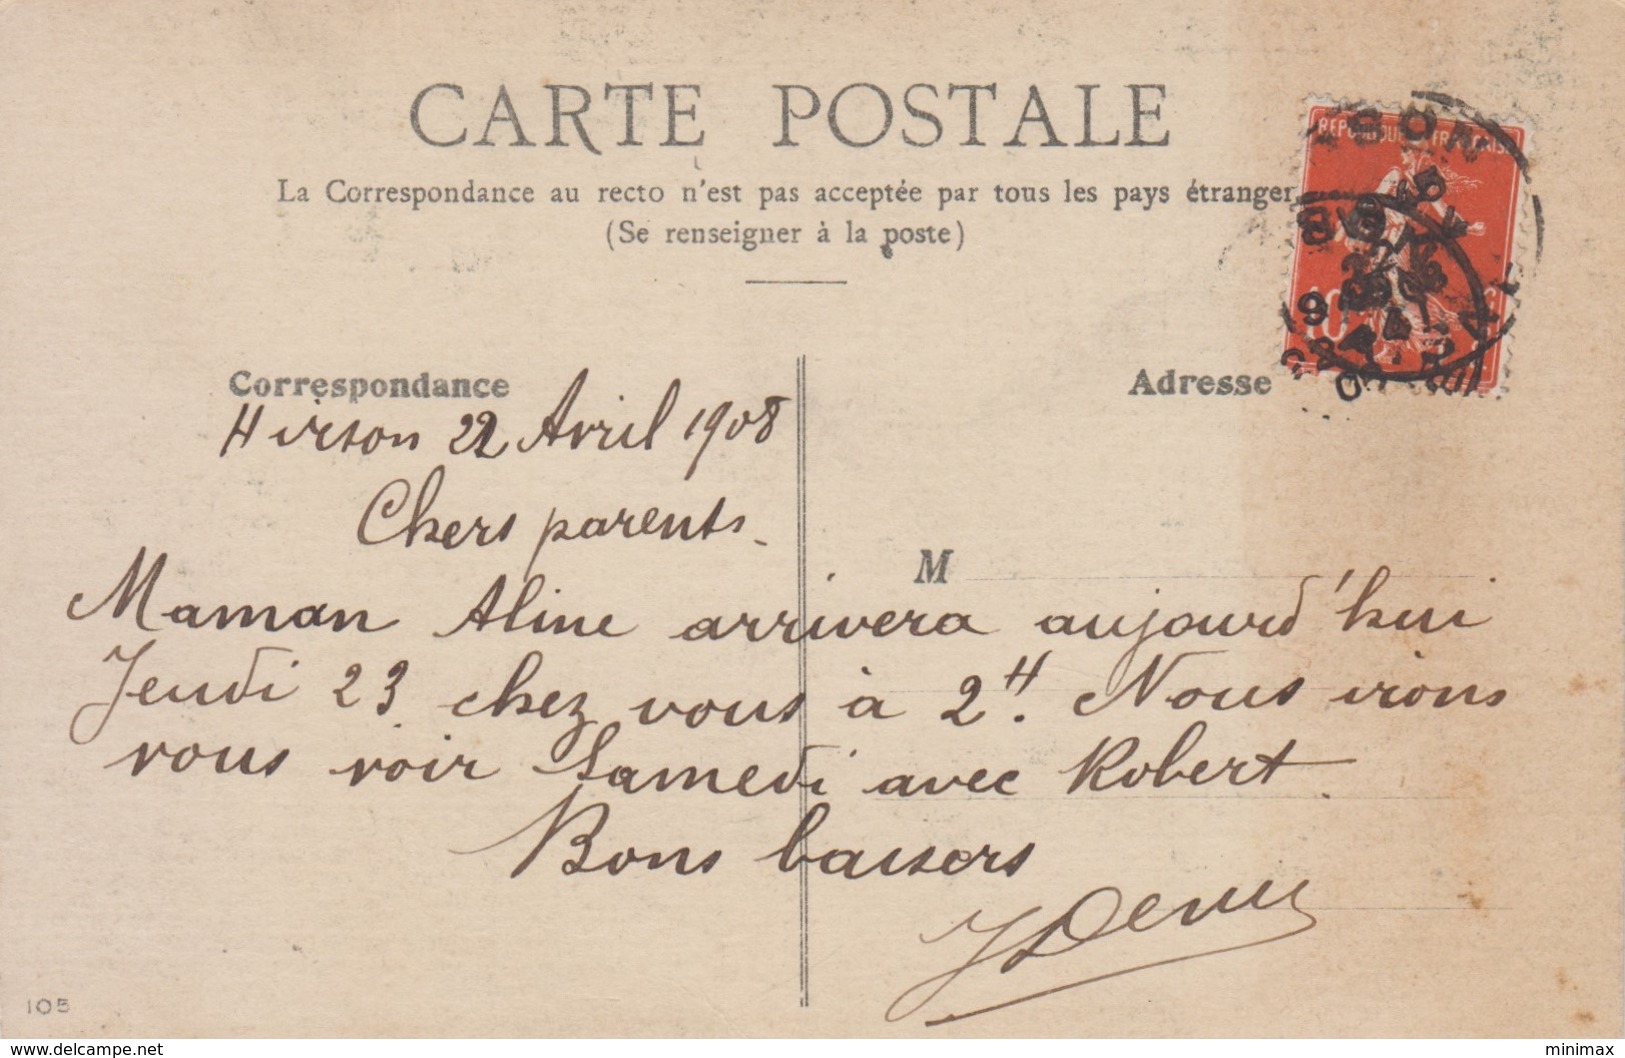 CARTE POSTALE
La Correspondance au recto n'est pas acceptée par tous les pays étranger
(Se renseigner à la poste)
REPUBLIQUE FRANÇAISE
10
Correspondance
Adresse
Hirson 22 Avril 1908
Chers parents.
M
Maman Aline arrivera aujourd'hui
Jeudi 23 chez vous à 2H. Nous irons
vous voir Samedi avec Robert.
Bons baisers
105
www.delcampe.net
minimax